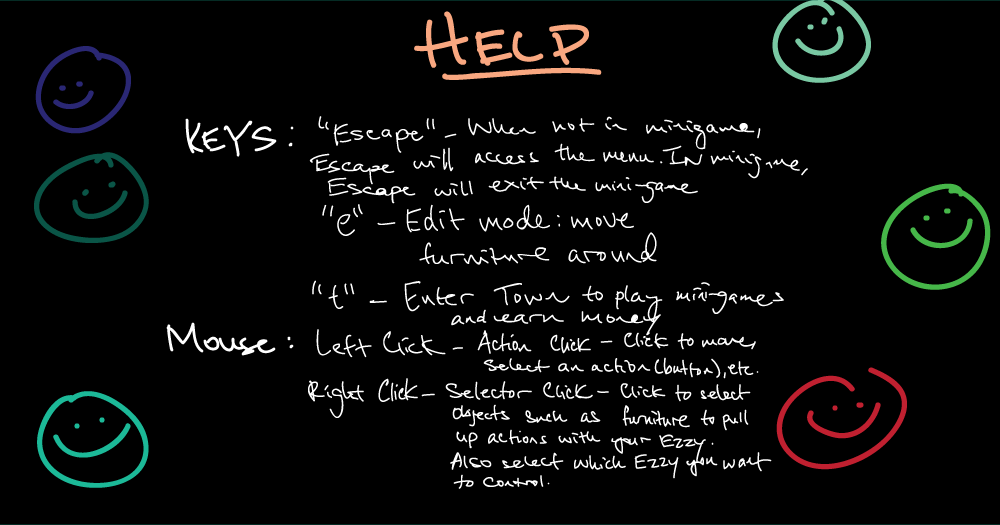 HELP
KEYS: "Escape" - When not in minigame,
Escape will access the menu. IN minigame,
Escape will exit the mini-game
"e" - Edit mode: move
furniture around
"t" - Enter Town to play mini-games
and earn money
Mouse: Left Click - Action Click - Click to move,
select an action (button), etc.
Right Click - Selector Click - Click to select
objects such as furniture to pull
up actions with your Ezzy.
Also select which Ezzy you want
to control.